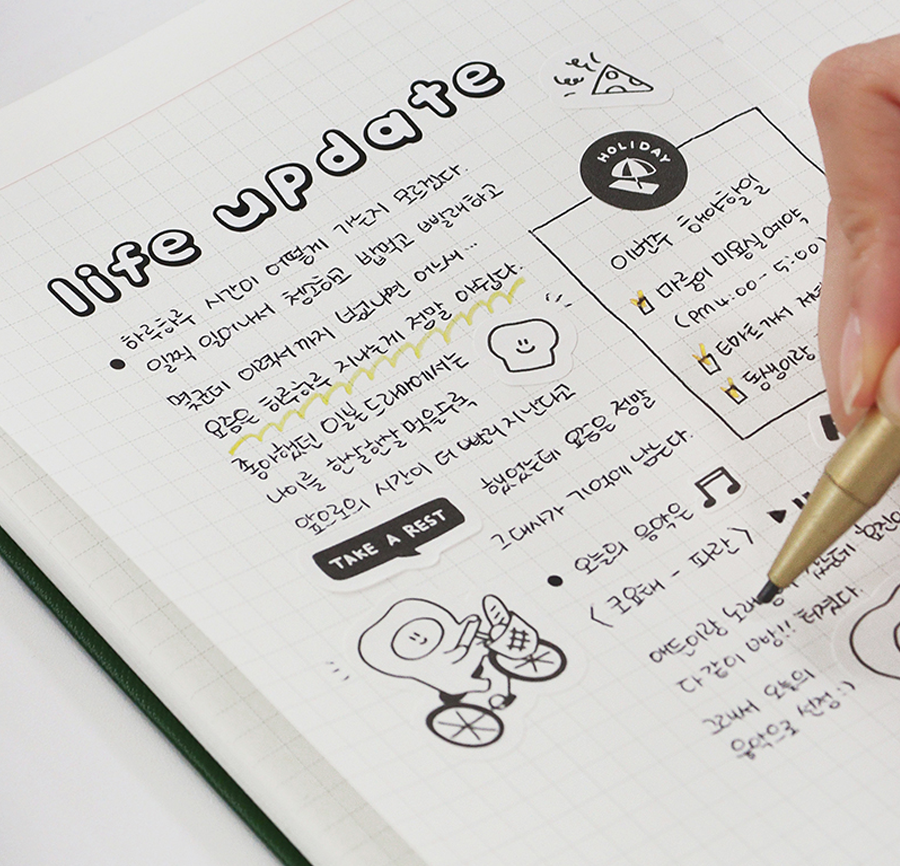 life update
하루하루 시간이 어떻게 가는지 모르겠다.
일찍 일어나서 청소하고 밥먹고 빨래하고
이력서까지 넣고나면 어느새...
요즘은 하루하루 지나는게 정말 아쉽다.
좋아했던 일본드라마에서는
나이를 한살한살 먹을수록
앞으로의 시간이 더 빨리 지난다고
했었는데 요즘은 정말
그 대사가 기억에 남는다.
TAKE A REST
오늘의 음악은
< 코요태 - 파란 >
애들이랑 노래
다같이 빵!! 터졌다.
그래서 오늘의
음악으로 선정 :)
HOLIDAY
이번주 해야할일
마롱이 미용실 예약
(pm 4:00 - 5:00)
E마트가서
동생이랑